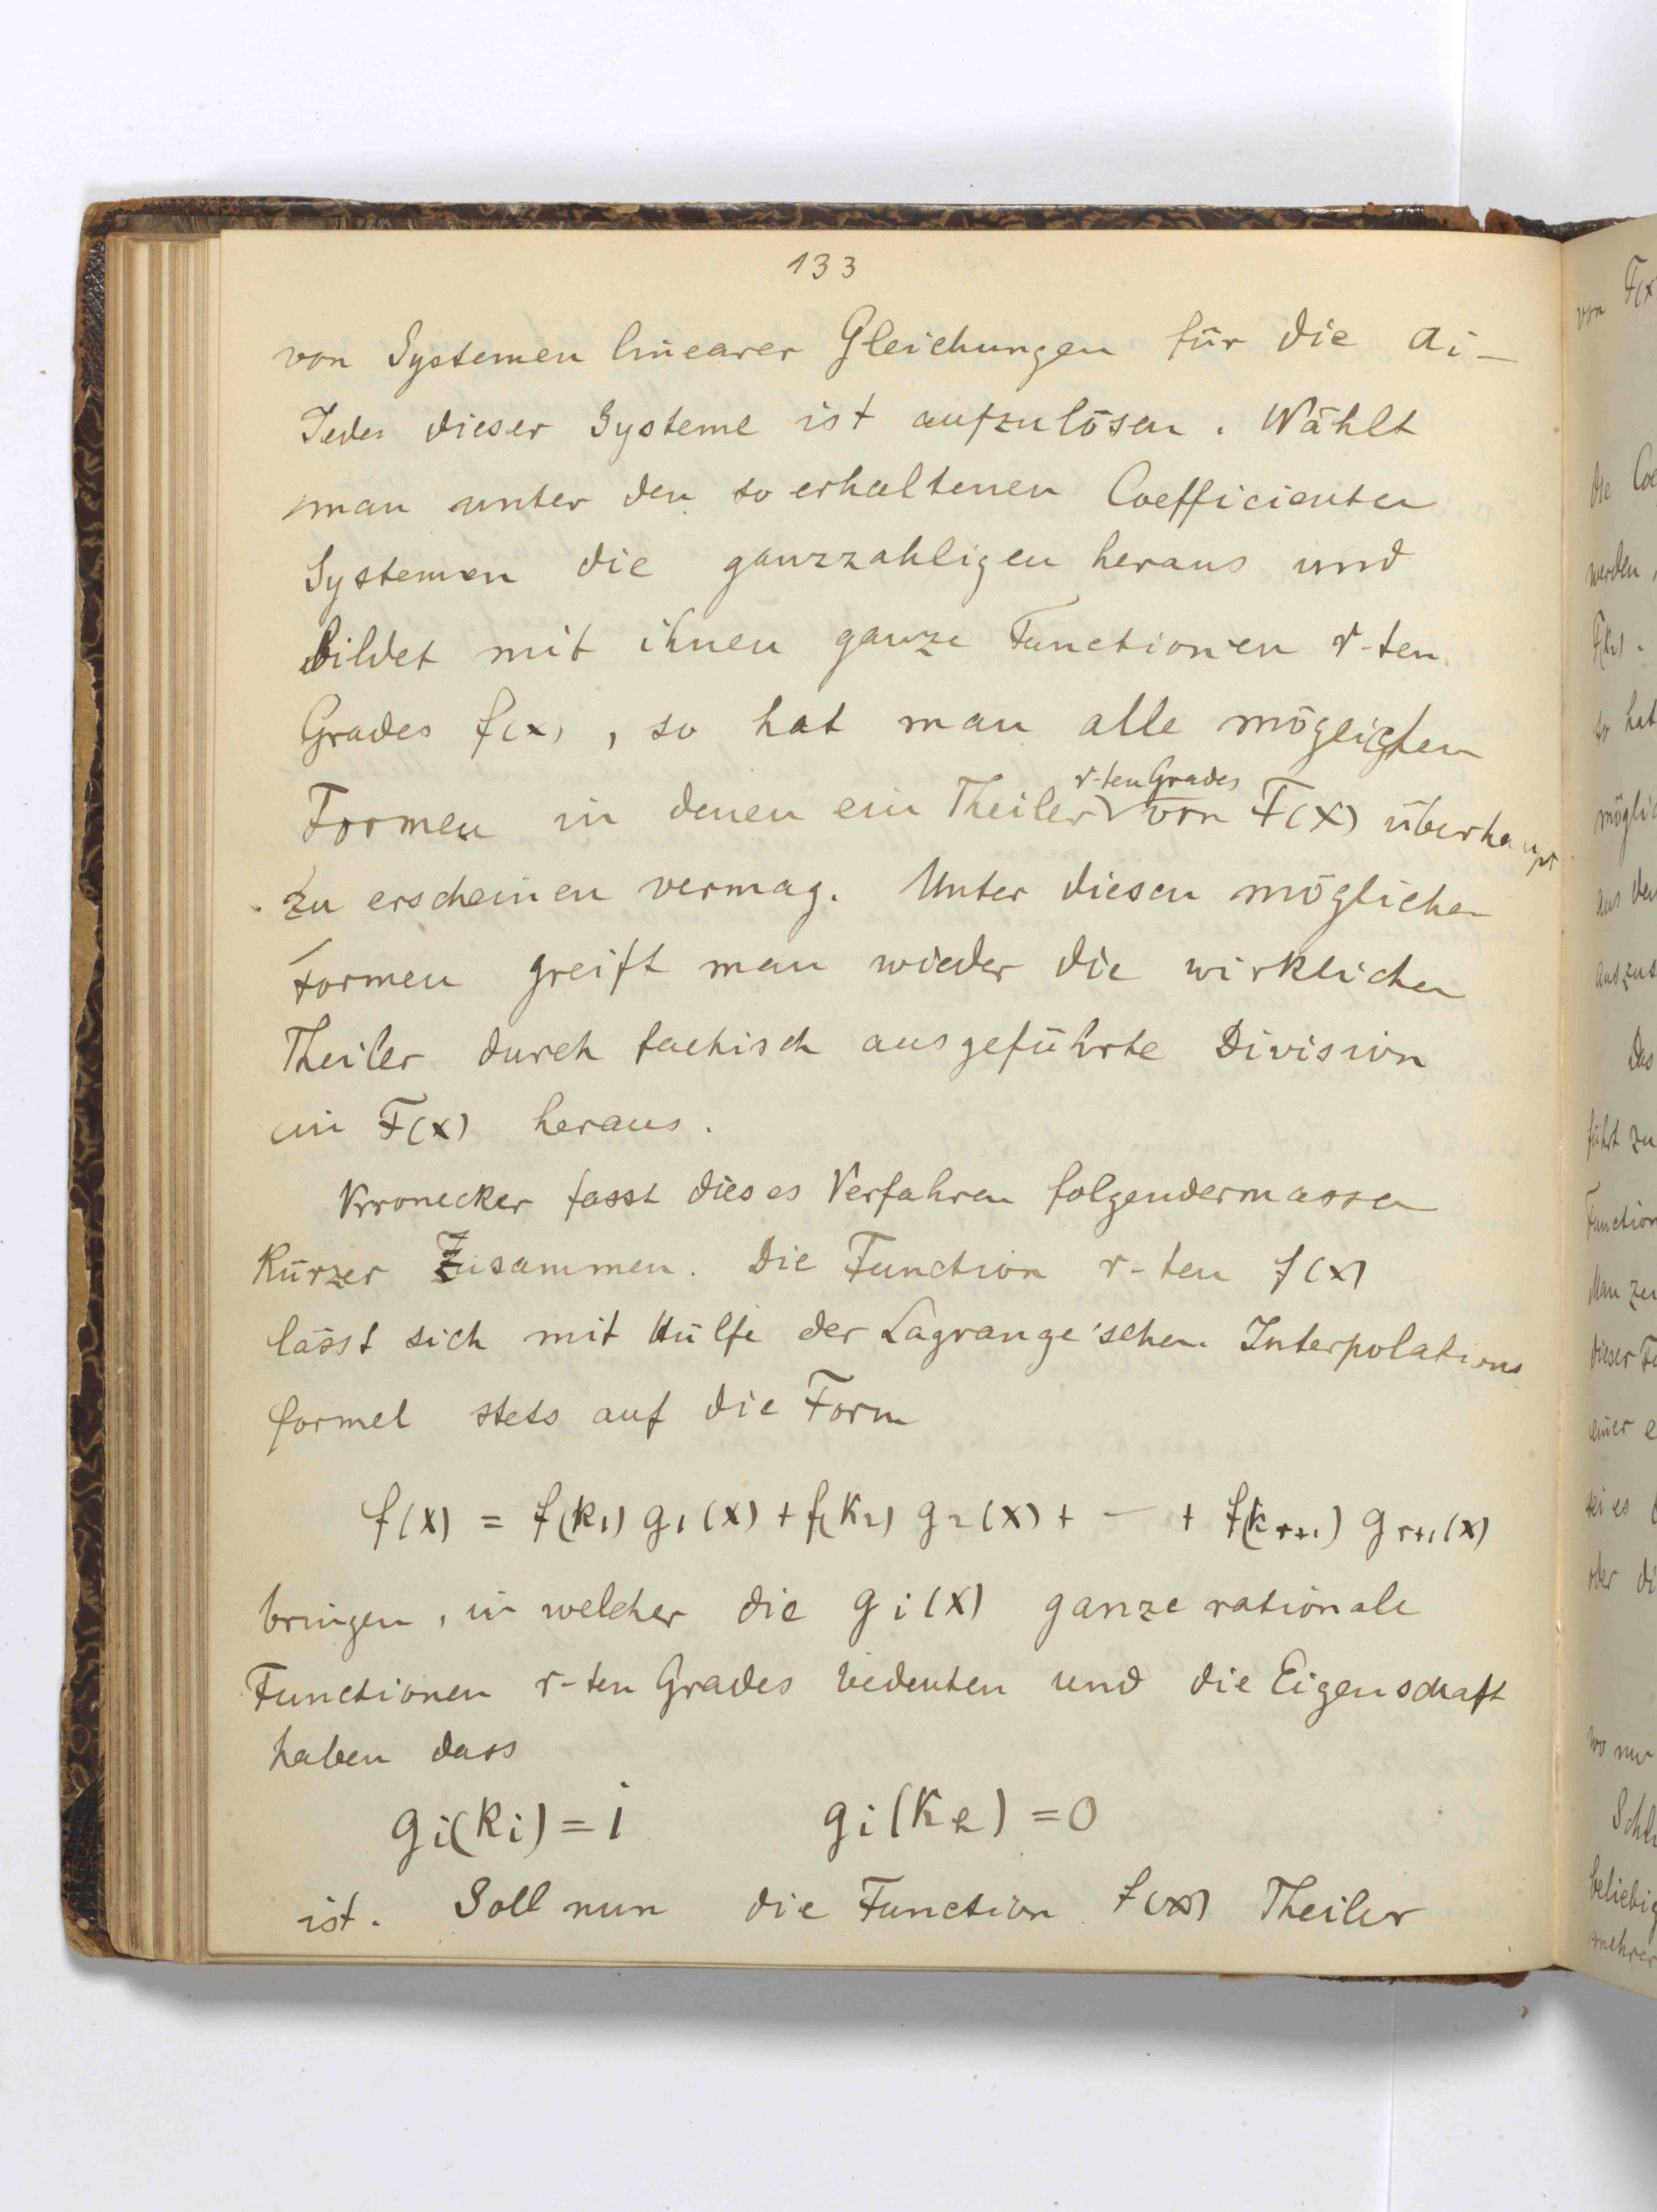 133
von Systemen linearer Gleichungen für die ai –
Jedes dieser Systeme ist aufzulösen. Wählt
man unter den so erhaltenen Coefficienten
Systemen die ganzzahligen heraus und
bildet mit ihnen ganze Functionen r-ten
Grades f(x), so hat man alle möglichen
r-ten Grades
Formen in denen ein Theiler von F(x) überhaupt
zu erscheinen vermag. Unter diesen möglichen
Formen greift man wieder die wirklichen
Theiler durch factisch ausgeführte Division
in F(x) heraus.
Kronecker fasst dieses Verfahren folgendermassen
kürzer zusammen. Die Function r-ten f(x)
lässt sich mit Hülfe der Lagrange'schen Interpolations
formel stets auf die Form
f(x) = f(k1) g1(x) + f(k2) g2(x) + — + f(kr+1) gr+1(x)
bringen, in welcher die gi(x) ganze rationale
Functionen r-ten Grades bedeuten und die Eigenschaft
haben dass
gi(ki) = 1 gi(kk) = 0
ist. Soll nun die Function f(x) Theiler
von F(x
die Coe
werden,
F(k2).
so hat
möglic
aus den
auszus
Das
führt zu
Function
Man zei
dieser Fu
einer e
sei es
oder di
wo nur
Schl
beliebig
mehrer